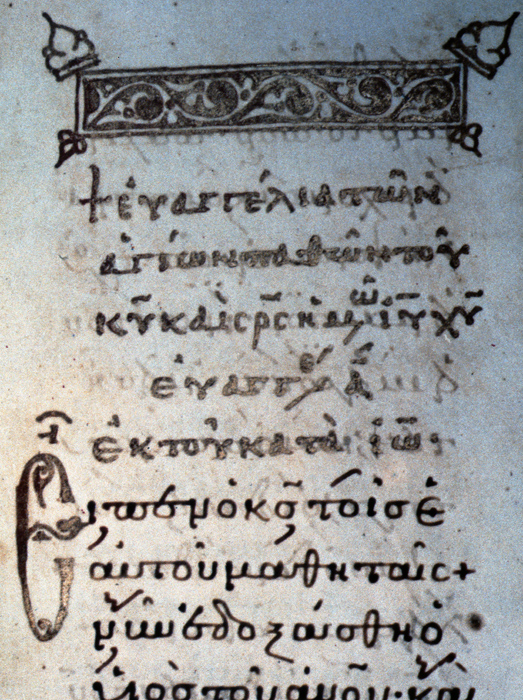 + εὐαγγέλια τῶν
ἁγίων παθῶν τοῦ
κ̅υ̅ καὶ σ̅ρ̅ς ἡμῶ ἰ̅υ̅ χ̅υ̅
εὐαγγέλ ά
ἐκ τοῦ κατὰ ἰω̅
Εἶπεν ὁ κ̅ς̅ τοῖς ἑ
αυτοῦ μαθηταῖς +
νῦν ἐδοξάσθη ὁ
υἱὸς τοῦ ἀνου καὶ